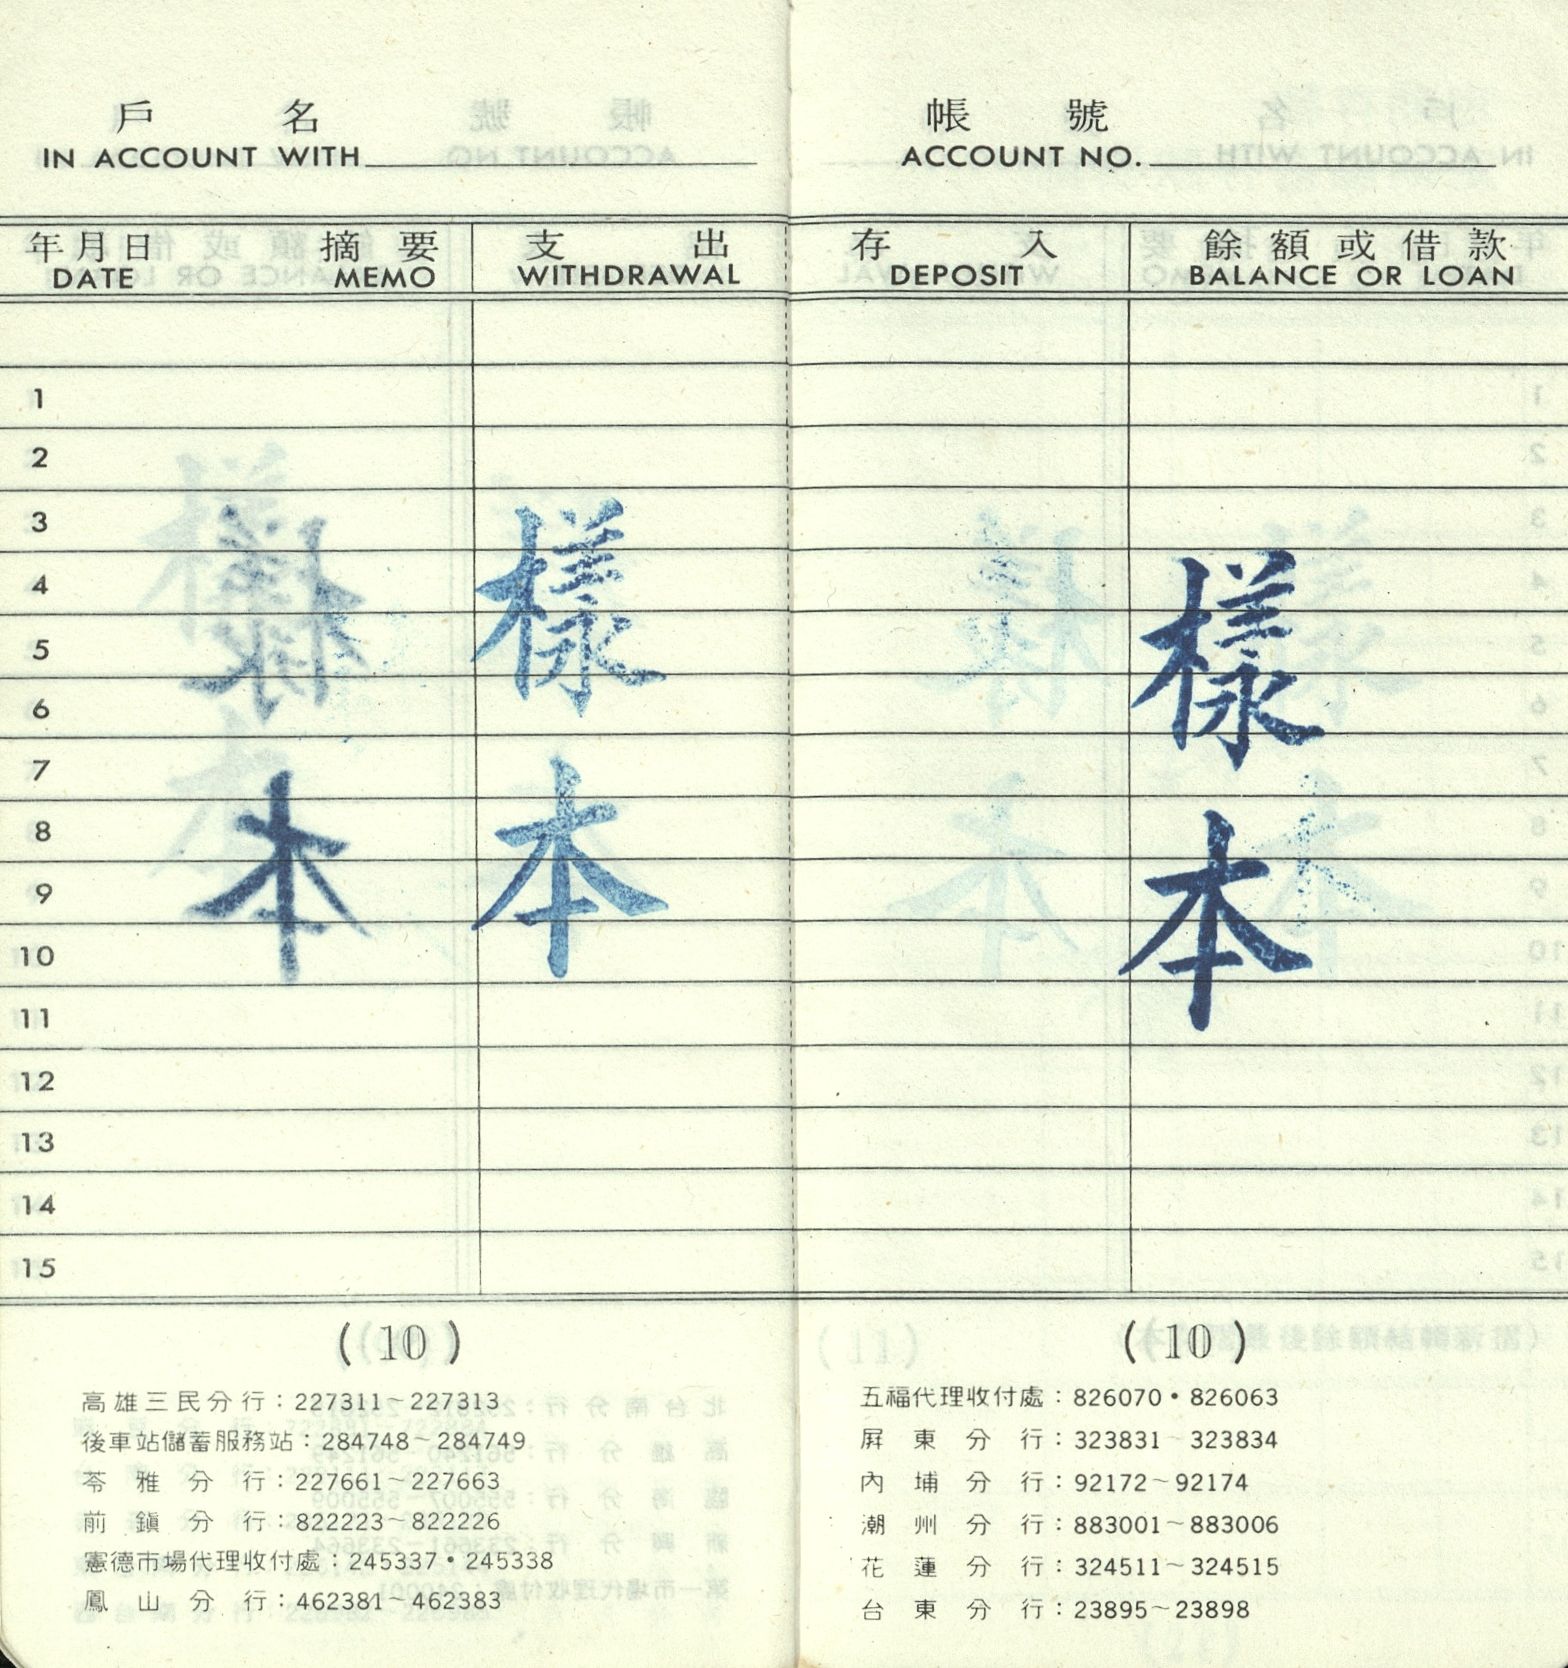 戶 名 帳 號
IN ACCOUNT WITH ACCOUNT NO.
年月日 摘要 支出 存入 餘額或借款
DATE MEMO WITHDRAWAL DEPOSIT BALANCE OR LOAN
1
2
3
4
5
6
7
8
9
10
11
12
13
14
15
樣本
樣本
樣本
(10)
高雄三民分行：227311～227313
後車站儲蓄服務站：284748～284749
苓雅分行：227661～227663
前鎭分行：822223～822226
憲德市場代理收付處：245337•245338
鳳山分行：462381～462383
(10)
五福代理收付處：826070•826063
屏東分行：323831～323834
內埔分行：92172～92174
潮州分行：883001～883006
花蓮分行：324511～324515
台東分行：23895～23898